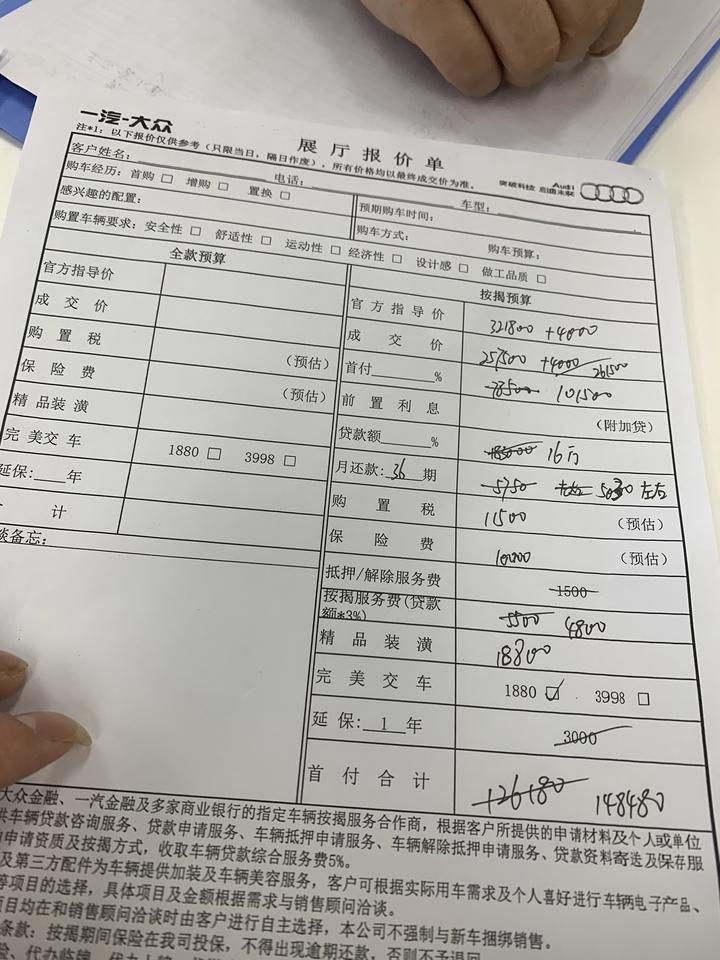 一汽-大众
展厅报价单
注*1: 以下报价仅供参考（只限当日，隔日作废），所有价格均以最终成交价为准。
突破科技 启迪未来 Audi
客户姓名: 电话: 车型:
购车经历: 首购 □ 增购 □ 置换 □ 预期购车时间:
感兴趣的配置: 购车方式: 购车预算:
购置车辆要求: 安全性 □ 舒适性 □ 运动性 □ 经济性 □ 设计感 □ 做工品质 □
全款预算
官方指导价
成交价
购置税 (预估)
保险费 (预估)
精品装潢
完美交车 1880 □ 3998 □
延保:____年
计
谈备忘:
按揭预算
官方指导价 321800 +4000
成交价 257500 +4000 261500
首付______% 78500 101500
前置利息 (附加贷)
贷款额______% 183000 16万
月还款: 36 期 5750 5030 左右
购置税 11500 (预估)
保险费 (预估)
抵押/解除服务费 1500
按揭服务费(贷款额*3%) 5500 4800
精品装潢 18800
完美交车 1880 ☑ 3998 □
延保: 1 年 3000
首付合计 126180 148480
大众金融、一汽金融及多家商业银行的指定车辆按揭服务合作商，根据客户所提供的申请材料及个人或单位
供车辆贷款咨询服务、贷款申请服务、车辆抵押申请服务、车辆解除抵押申请服务、贷款资料寄送及保存服
申请资质及按揭方式，收取车辆贷款综合服务费5%。
及第三方配件为车辆提供加装及车辆美容服务，客户可根据实际用车需求及个人喜好进行车辆电子产品、
等项目的选择，具体项目及金额根据需求与销售顾问洽谈。
项目均在和销售顾问洽谈时由客户进行自主选择，本公司不强制与新车捆绑销售。
条款: 按揭期间保险在我司投保，不得出现逾期还款，否则不予退回